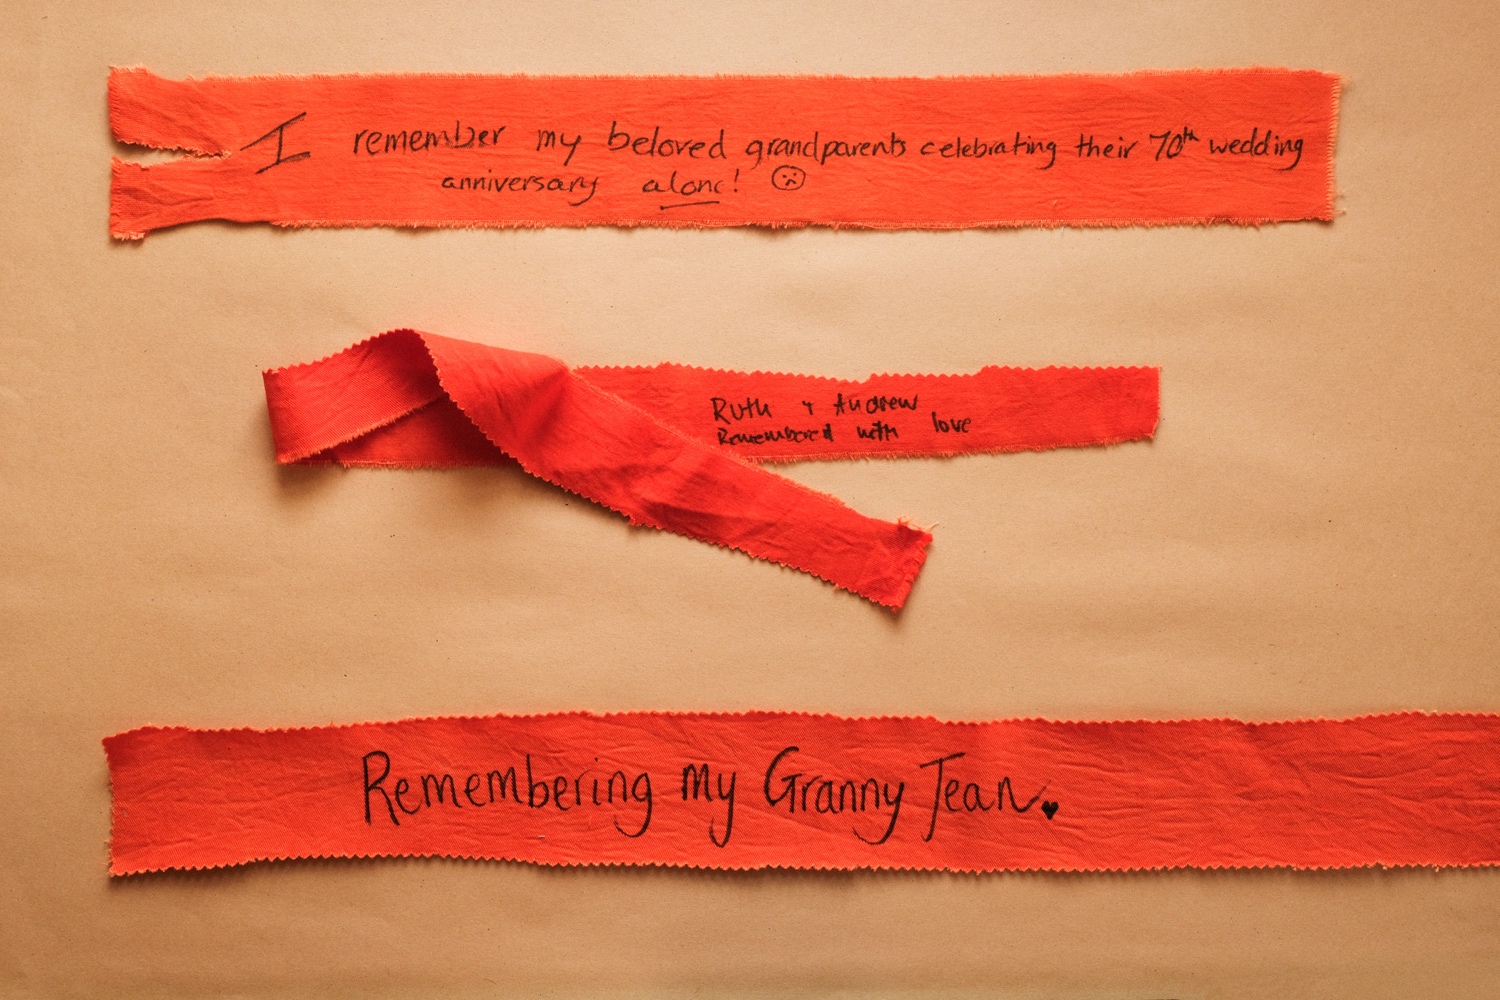 I remember my beloved grandparents celebrating their 70th wedding
anniversary alone! ☹
Ruth & Andrew
Remembered with love
Remembering my Granny Jean. ♥